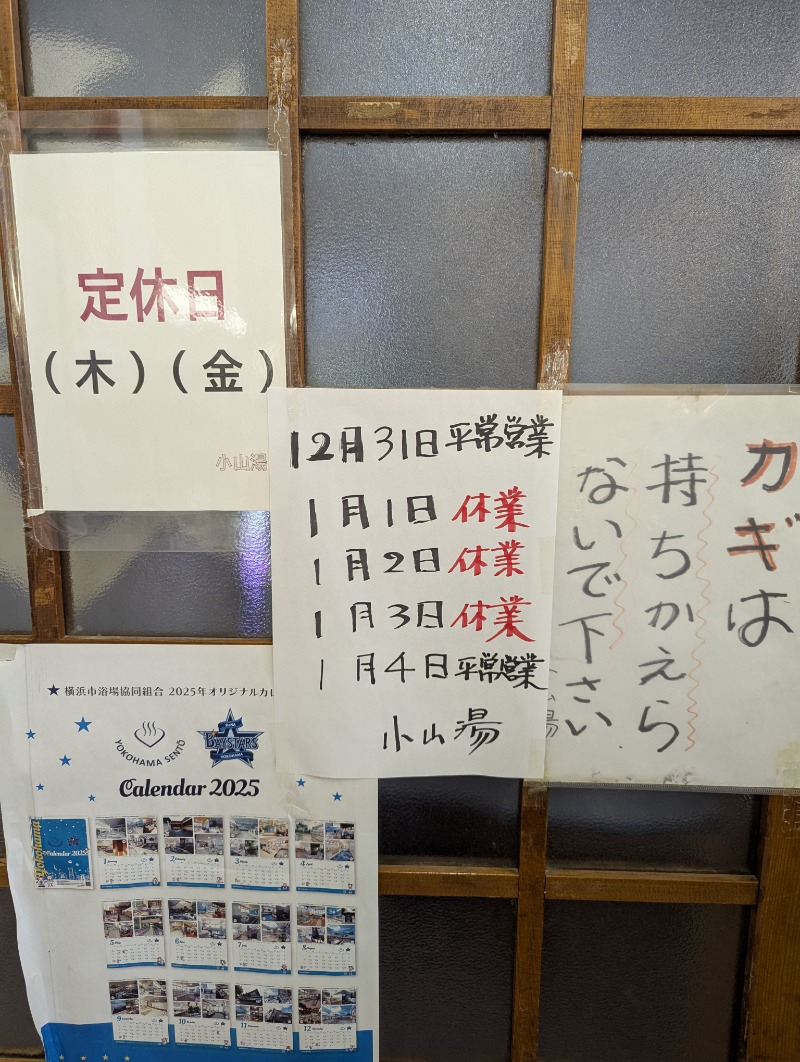 定休日
（木）（金）
小山湯
12月31日 平常営業
1月1日 休業
1月2日 休業
1月3日 休業
1月4日 平常営業
小山湯
カギは
持ちかえら
ないで下さい
★横浜市浴場協同組合 2025年オリジナルカレ
YOKOHAMA SENTŌ
BAYSTARS
YOKOHAMA
Calendar 2025
Calendar 2025
1
2
3
4
5
6
7
8
9
10
11
12